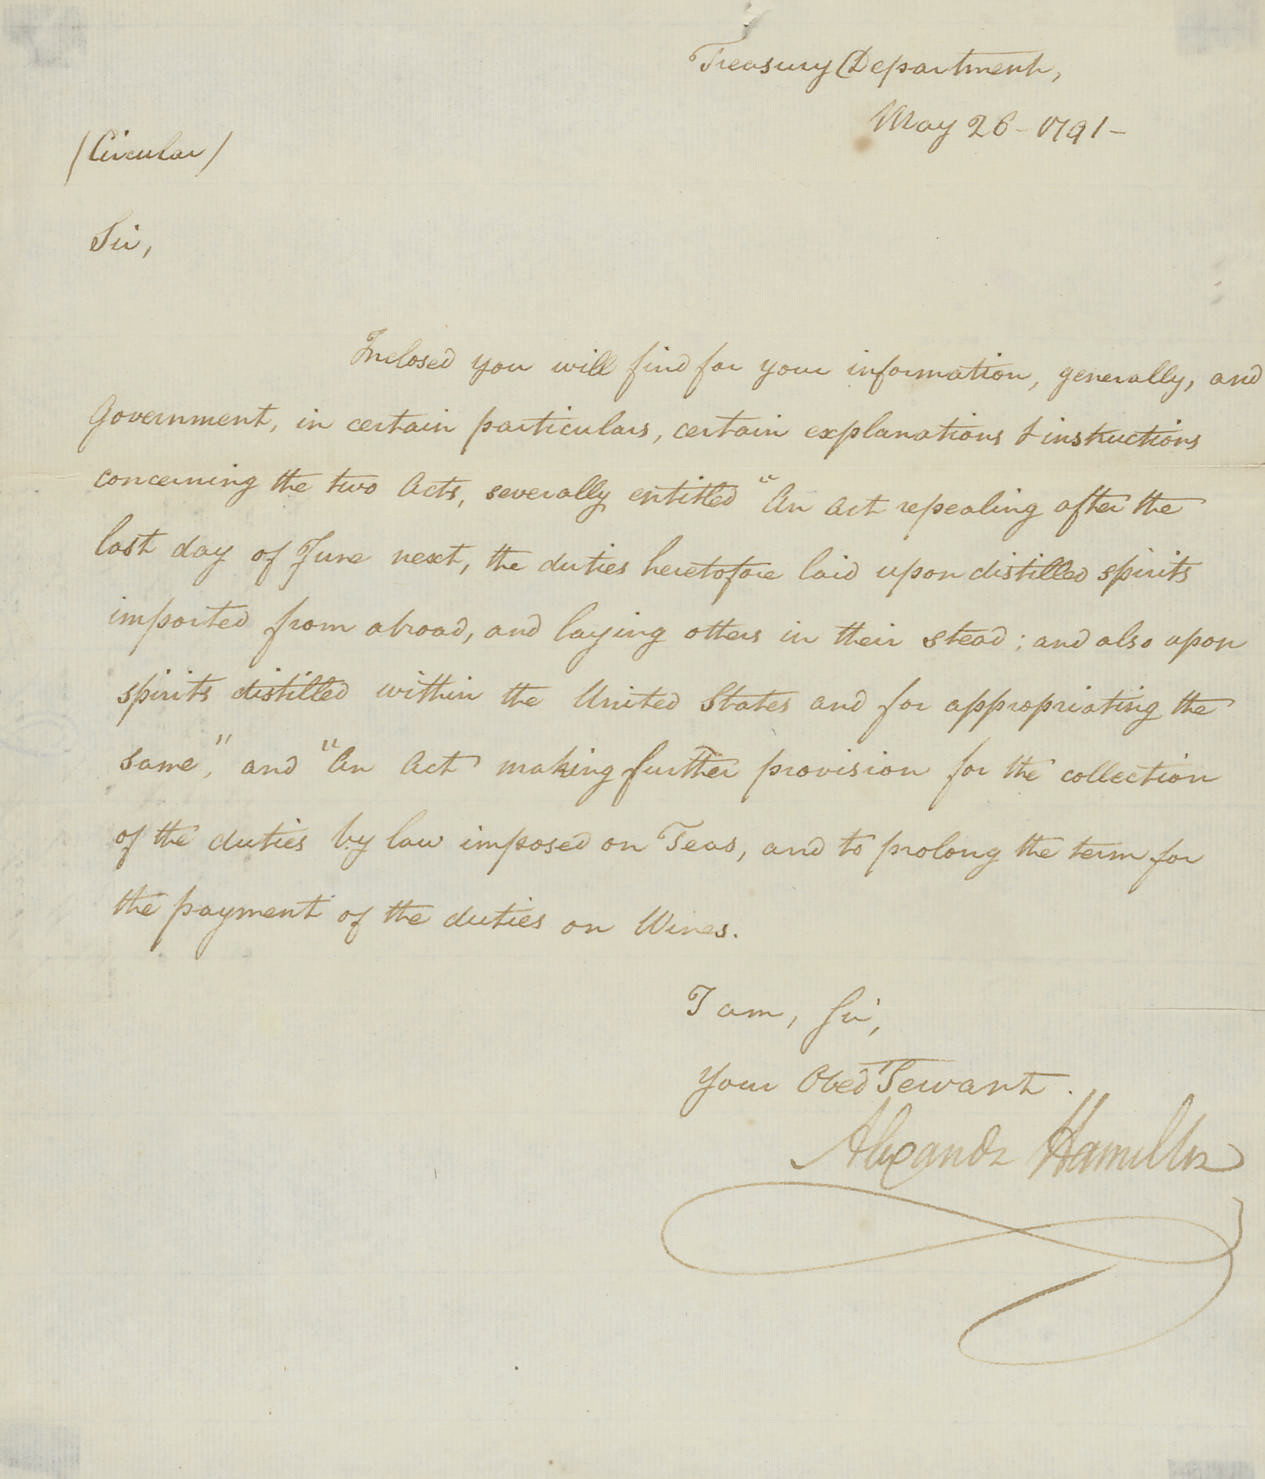 Treasury Department,
May 26 - 1791 -
/Circular/
Sir,
Inclosed you will find for your information, generally, and
Government, in certain particulars, certain explanations & instructions
concerning the two Acts, severally entitled "An Act repealing after the
last day of June next, the duties heretofore laid upon distilled spirits
imported from abroad, and laying others in their stead; and also upon
spirits distilled within the United States and for appropriating the
same," and "An Act making further provision for the collection
of the duties by law imposed on Teas, and to prolong the term for
the payment of the duties on Wines.
I am, Sir,
Your Obed Servant.
Alexander Hamilton